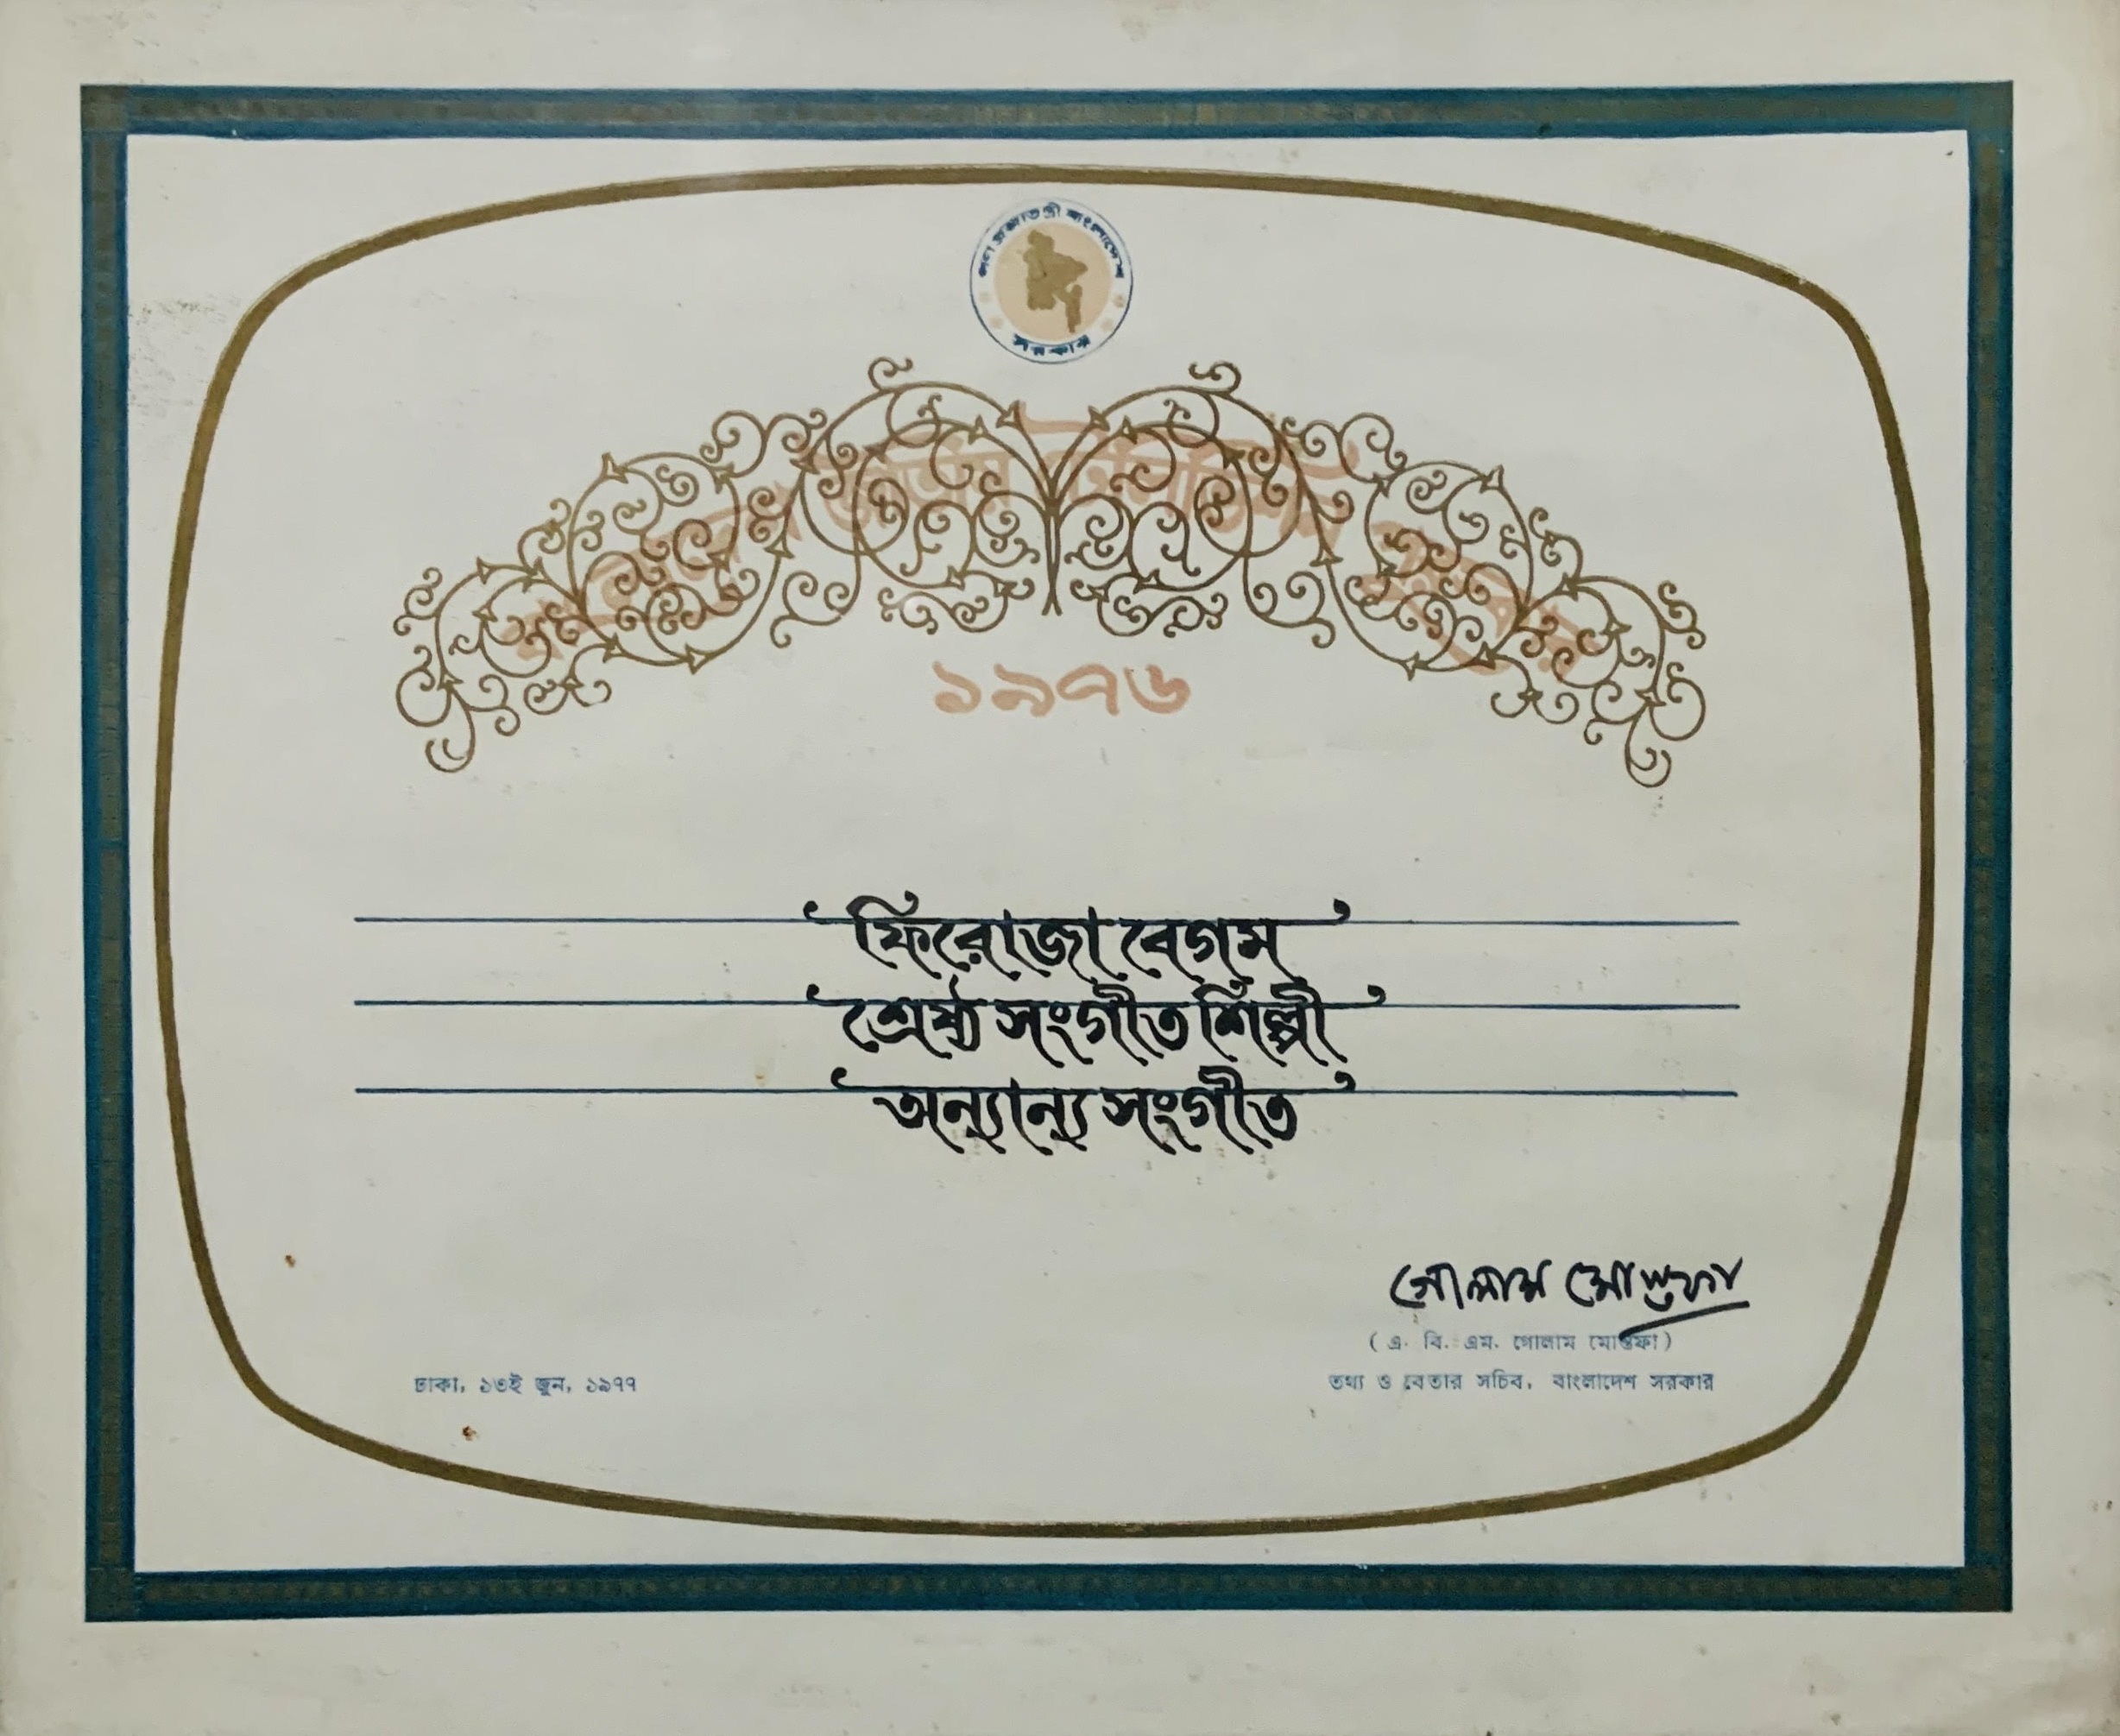 গণপ্রজাতন্ত্রী বাংলাদেশ
সরকার
টেলিভিশন
১৯৭৬
ফিরোজা বেগম
শ্রেষ্ঠ সংগীত শিল্পী
অন্যান্য সংগীত
গোলাম মোস্তফা
( এ. বি. এম. গোলাম মোস্তফা )
ঢাকা, ১৩ই জুন, ১৯৭৭
তথ্য ও বেতার সচিব, বাংলাদেশ সরকার